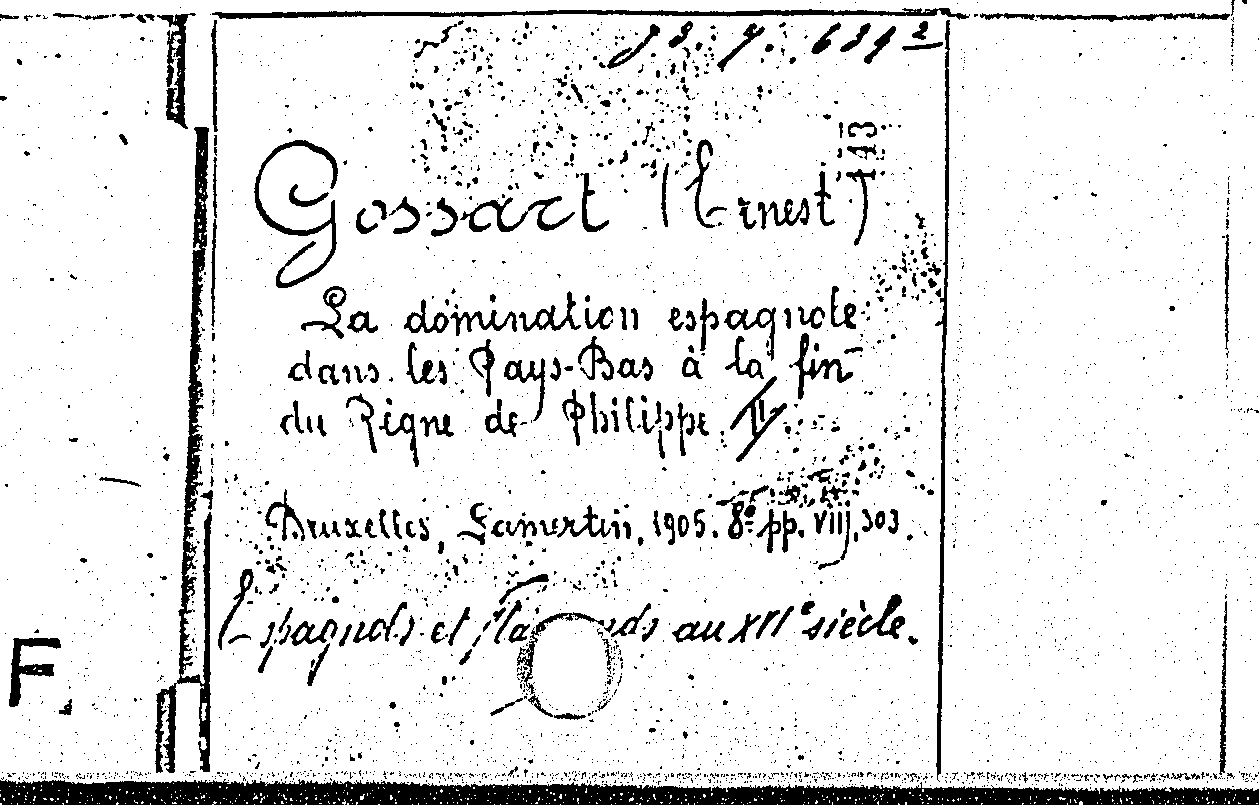 143
Gossart (Ernest)
La domination espagnole
dans les Pays-Bas à la fin
du Règne de Philippe II.
Bruxelles, Lamertin, 1905. 8º pp. viij, 303.
Espagnols et au XVIe siècle.
F.